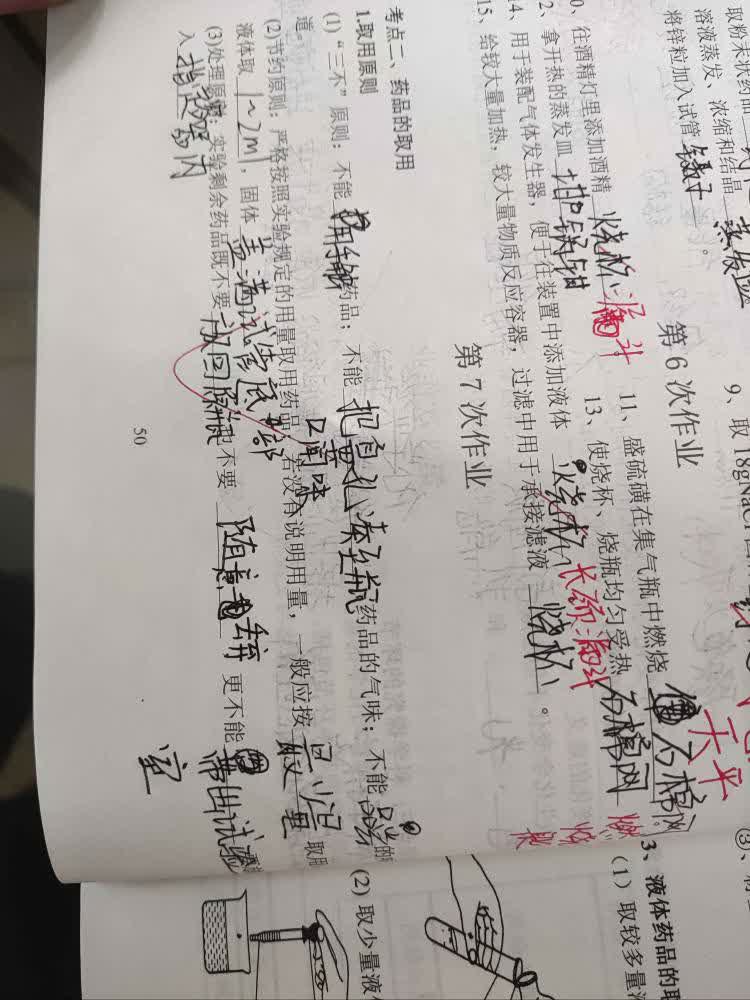 取粉末状药品
溶液蒸发、浓缩和结晶 蒸发皿
将锌粒加入试管 镊子 。
9、取18gNaCl
天平
第 6 次作业
0、往酒精灯里添加酒精 烧杯 漏斗
11、盛硫磺在集气瓶中燃烧 石棉网
燃烧
2、拿开热的蒸发皿 坩埚钳
13、使烧杯、烧瓶均匀受热 石棉网
14、用于装配气体发生器，便于往装置中添加液体 烧杯 长颈漏斗
15、给较大量加热，较大量物质反应容器，过滤中用于承接滤液 烧杯 。
第 7 次作业
考点二、药品的取用
1.取用原则
(1)“三不”原则：不能 用手触 药品；不能 把鼻孔凑到瓶口闻 药品的气味；不能 品尝 的
道。
(2)节约原则：严格按照实验规定的用量取用药品；若没有说明用量，一般应按 最少量 取用
液体取 1~2ml ，固体 盖满试管底部
(3)处理原则：实验剩余药品既不要 放回原瓶 ，也不要 随意丢弃 更不能 带出试验室
入 指定容器内
50
3、液体药品的取
(1)取较多量液
(2)取少量液体
③、